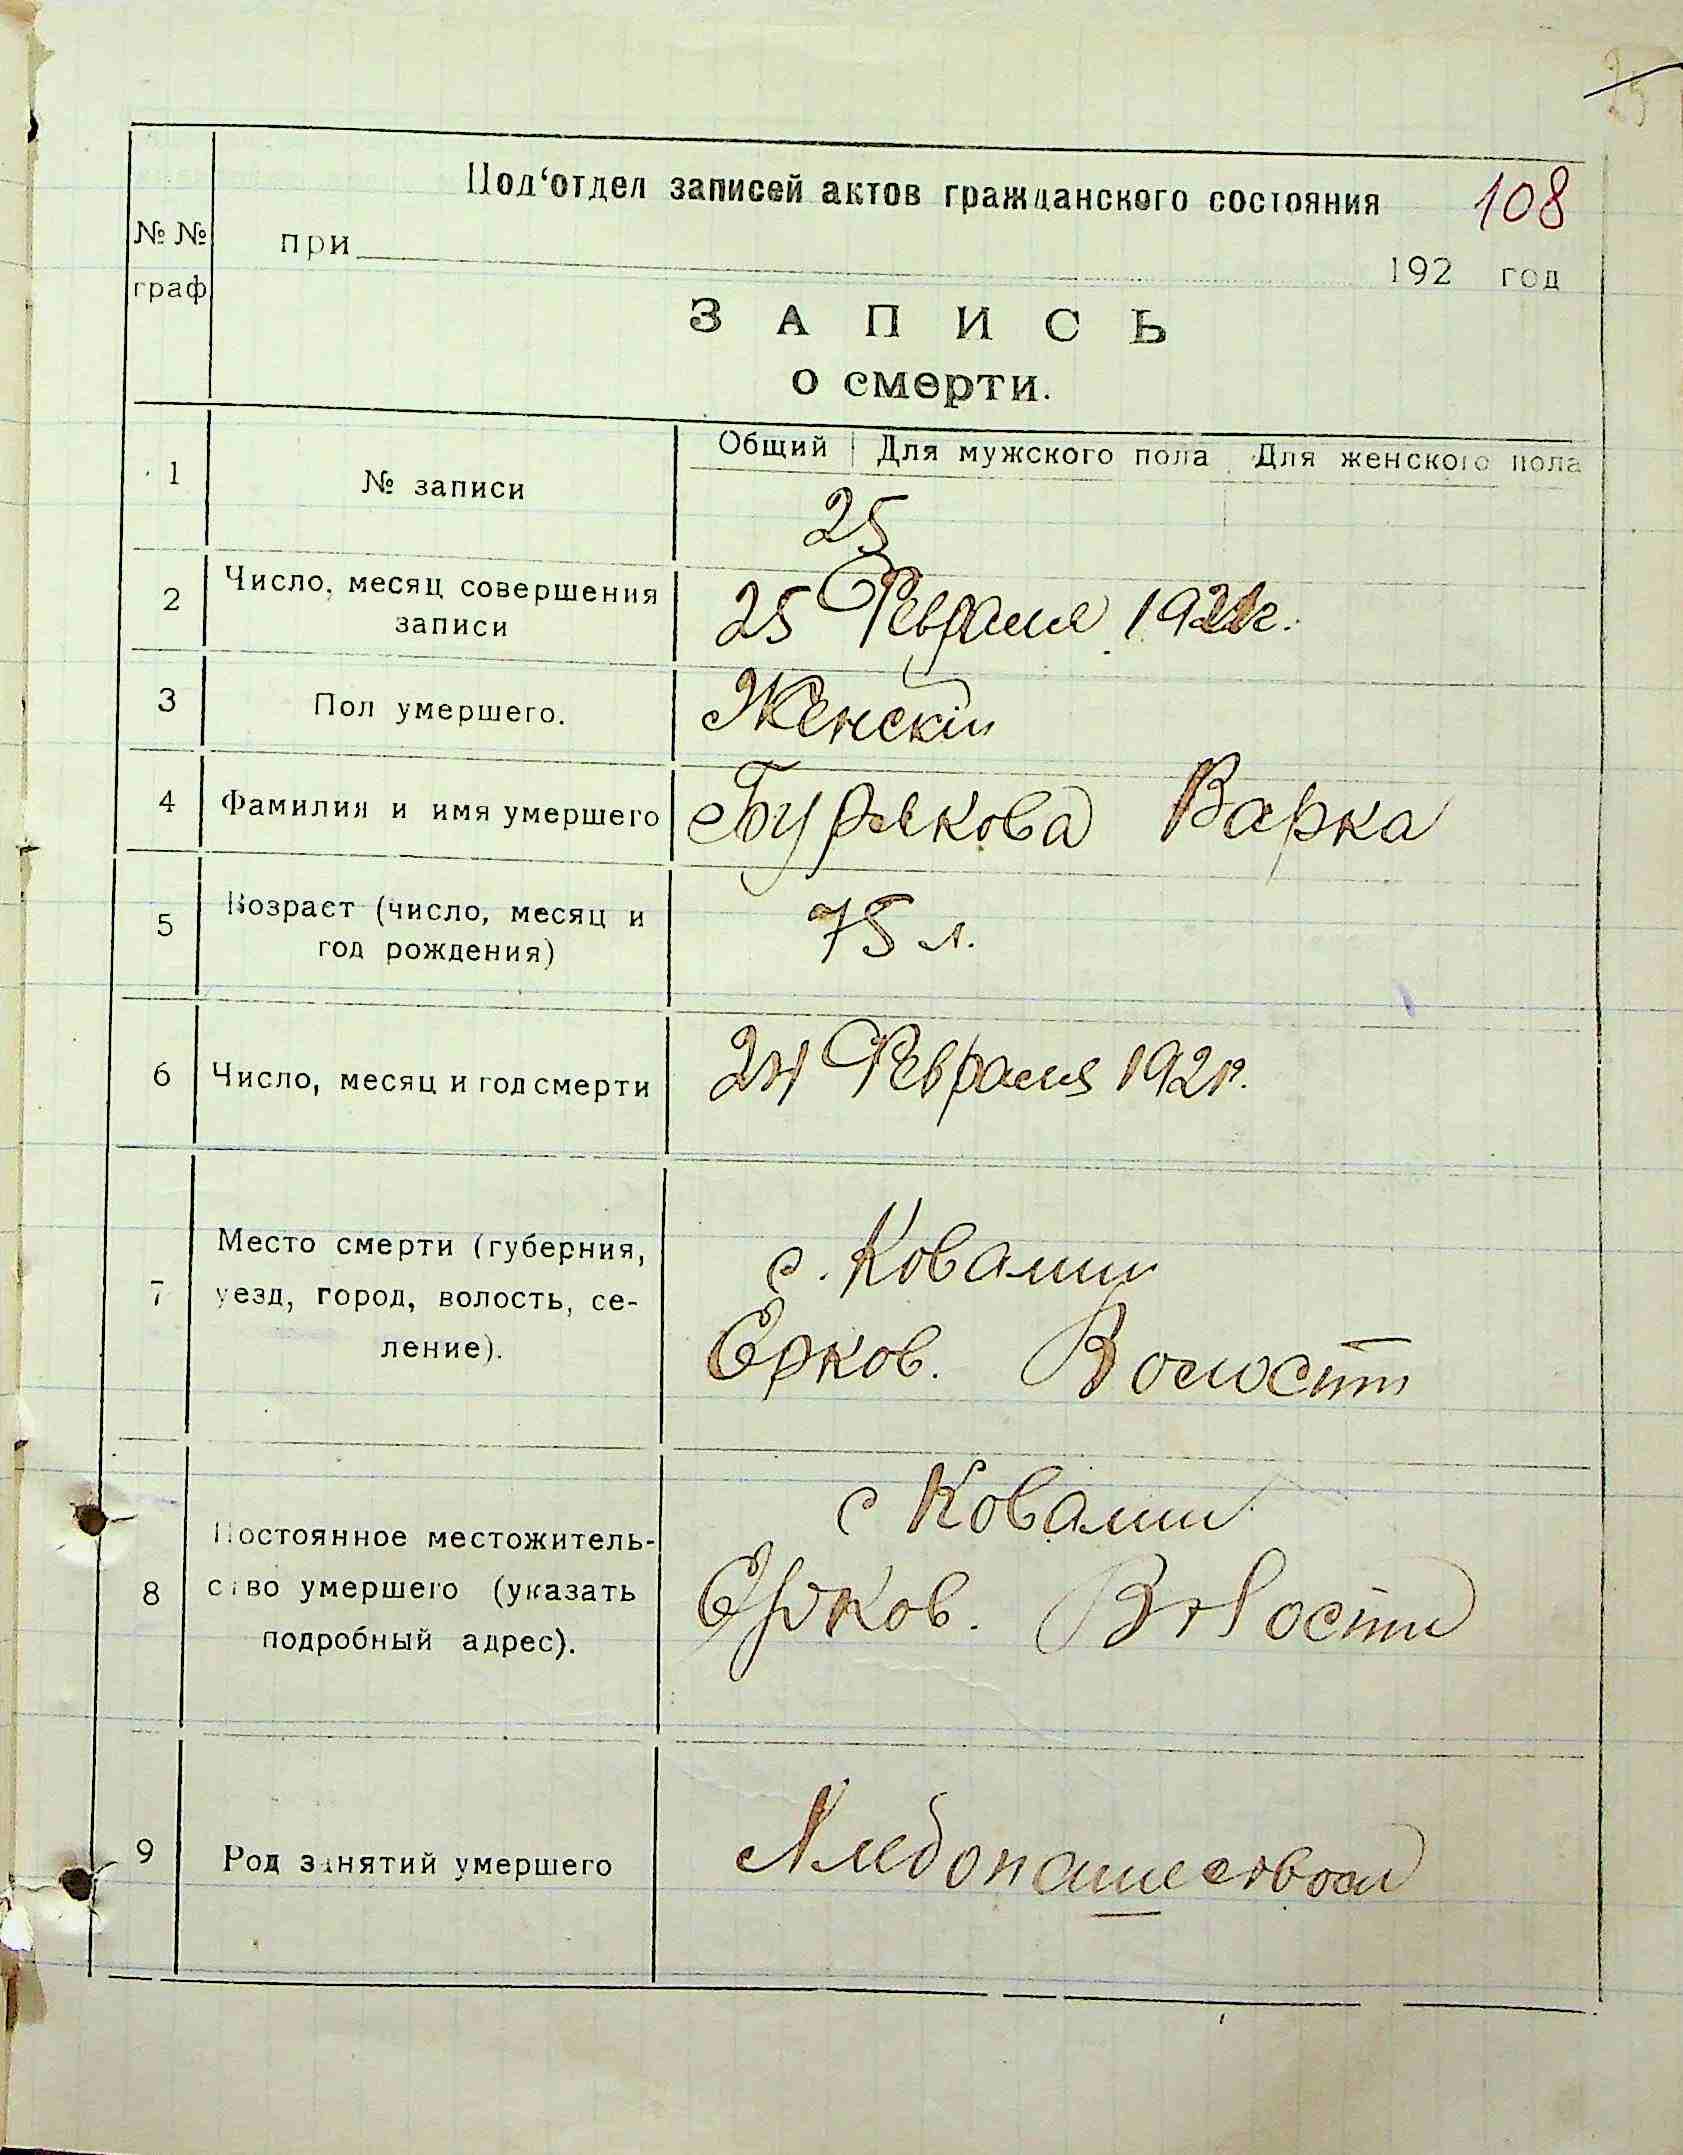 25
Под‘отдел записей актов гражданского состояния
108
№ № граф
при 192 год
ЗАПИСЬ
о смерти.
Общий Для мужского пола Для женского пола
1 № записи
25
2 Число, месяц совершения
записи
25 Февраля 1921г.
3 Пол умершего.
Женскій
4 Фамилия и имя умершего
Бурлкова Варка
5 Возраст (число, месяц и
год рождения)
75 л.
6 Число, месяц и год смерти
24 Февраля 1921г.
7 Место смерти (губерния,
уезд, город, волость, се-
ление).
с. Ковалин
Ерков. Волости
8 Постоянное местожитель-
ство умершего (указать
подробный адрес).
с Ковалин
Ерков. Волости
9 Род занятий умершего
Хлебопашеством